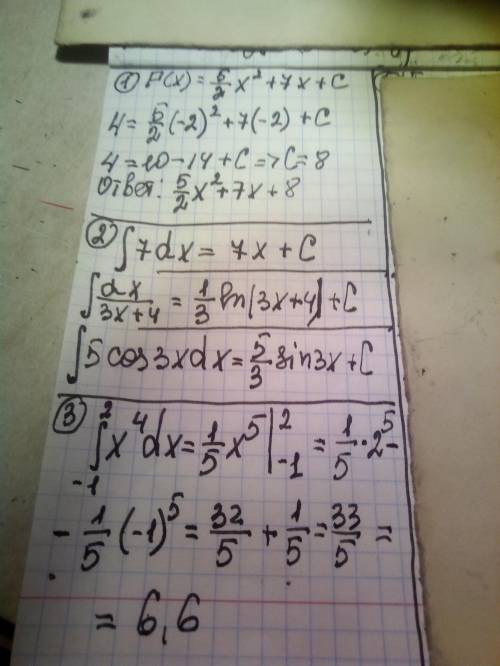 ① F(x) = 5/2 x² + 7x + C
4 = 5/2 (-2)² + 7(-2) + C
4 = 10 - 14 + C => C = 8
Ответ: 5/2 x² + 7x + 8
② ∫ 7dx = 7x + C
∫ dx/(3x+4) = 1/3 ln|3x+4| + C
∫ 5 cos 3x dx = 5/3 sin 3x + C
③ ∫₋₁² x⁴dx = 1/5 x⁵ |₋₁² = 1/5 · 2⁵ -
- 1/5 (-1)⁵ = 32/5 + 1/5 = 33/5 =
= 6,6